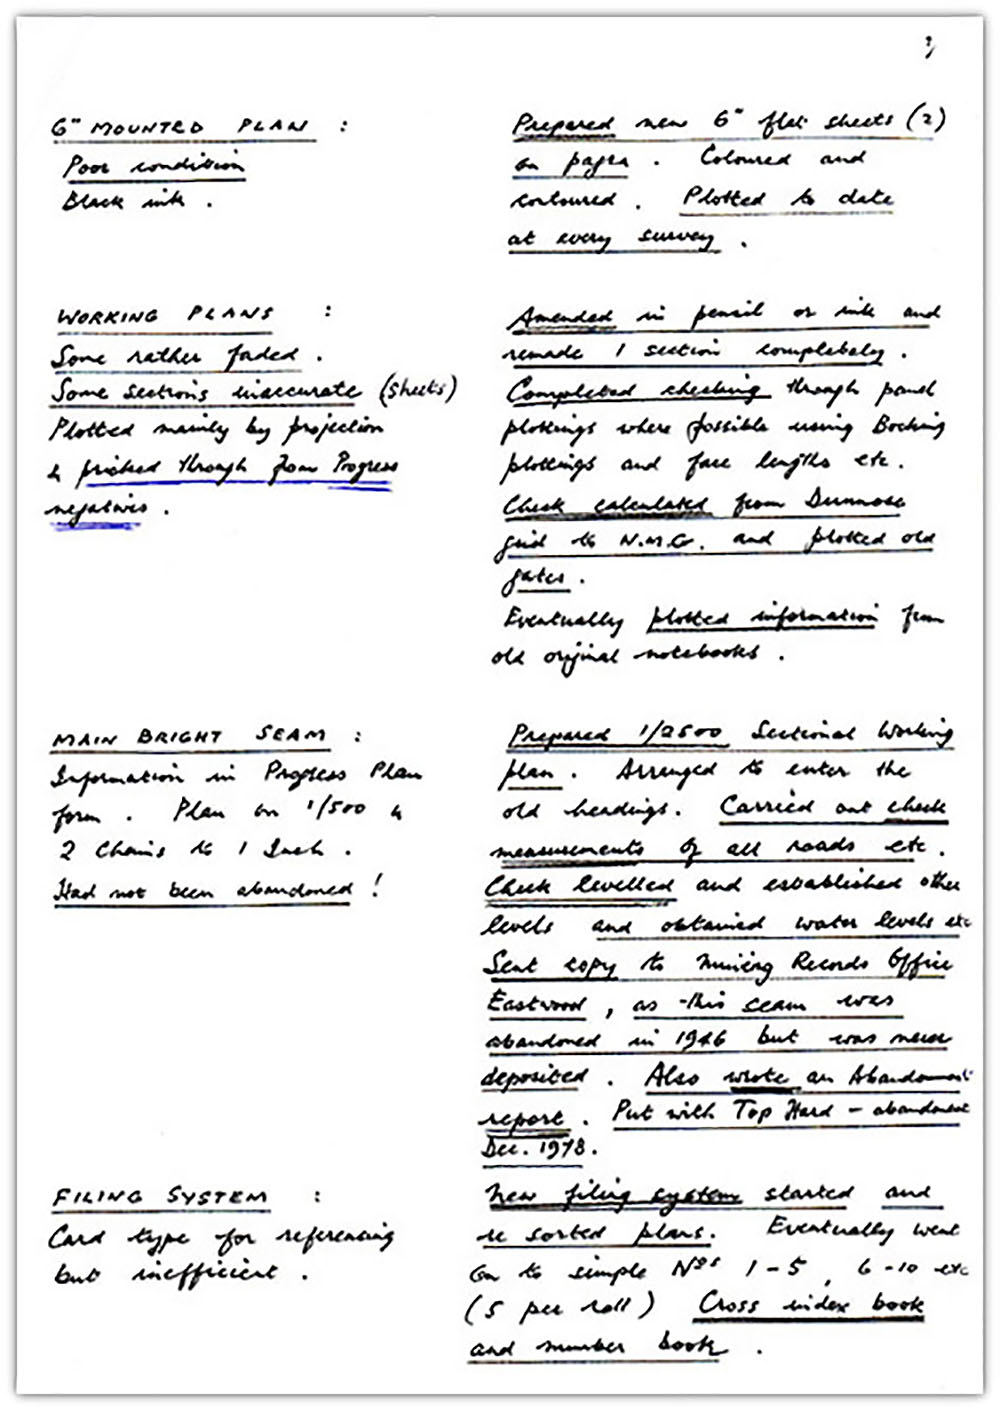 3
6" MOUNTED PLAN :
Poor condition
Black ink .
Prepared new 6" flat sheets (2)
on pagra . Coloured and
contoured . Plotted to date
at every survey .
WORKING PLANS :
Some rather faded .
Some sections inaccurate (sheets)
Plotted mainly by projection
& pricked through from Progress
negatives .
Amended in pencil or ink and
remade 1 section completely .
Completed checking through panel
plottings where possible using Booking
plottings and face lengths etc.
Check calculated from Dunnose
grid to N.M.G. and plotted old
gates .
Eventually plotted information from
old original notebooks .
MAIN BRIGHT SEAM :
Information in Progress Plan
form . Plan on 1/500 &
2 Chains to 1 Inch .
Had not been abandoned !
Prepared 1/2500 Sectional Working
plan . Arranged to enter the
old headings . Carried out check
measurements of all roads etc .
Check levelled and established other
levels and obtained water levels etc
Sent copy to Mining Records Office
Eastwood , as this seam was
abandoned in 1946 but was never
deposited . Also wrote an Abandonment
report . Put with Top Hard - abandonment
Dec. 1978 .
FILING SYSTEM :
Card type for referencing
but inefficient .
New filing system started and
re sorted plans . Eventually went
on to simple Nos 1-5 , 6-10 etc
(5 per roll) Cross index book
and number book .